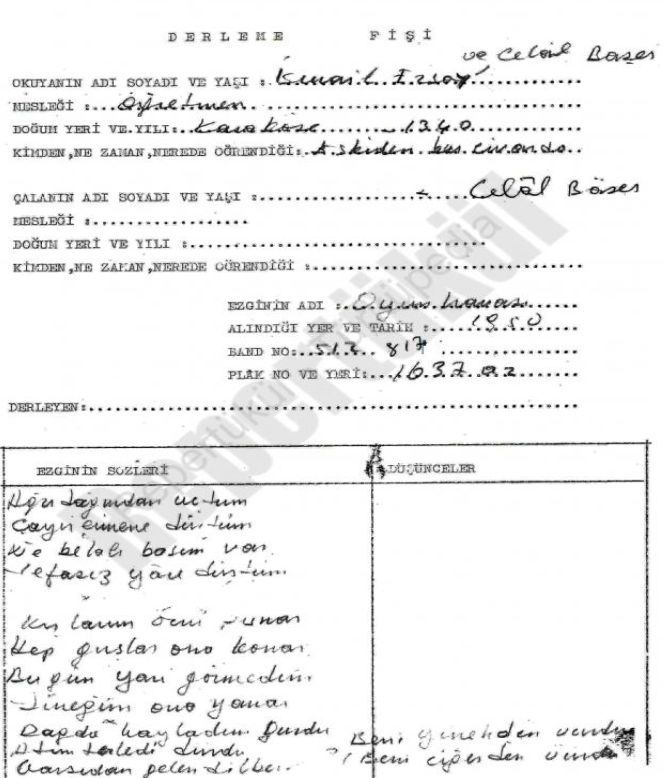 DERLEME FİŞİ
ve Celâl Başer
OKUYANIN ADI SOYADI VE YAŞI : İsmail Ersoy
MESLEĞİ : Öğretmen
DOĞUM YERİ VE YILI: Karaköse 1340
KİMDEN,NE ZAMAN,NEREDE ÖĞRENDİĞİ:
ÇALANIN ADI SOYADI VE YAŞI : Celâl Başer
MESLEĞİ :
DOĞUM YERİ VE YILI :
KİMDEN,NE ZAMAN,NEREDE ÖĞRENDİĞİ :
EZGİNİN ADI : Oyun havası
ALINDIĞI YER VE TARİH : 1950
BAND NO: 512 817
PLÂK NO VE YERİ: 1637 az
DERLEYEN:
EZGİNİN SÖZLERİ
DÜŞÜNCELER
Ağrı dağından uctum
Çayır çimene düştüm
Ne belalı başım var
Vefasız yâre düştüm
önü pınar
Hep guşlar ona konar
Bu gün yari görmedim
Yüreğim ona yanar
Dağda
durdu
Garşıdan gelen dilber
Beni yürekden vurdu
Beni ciğerden vurdu
repertükül